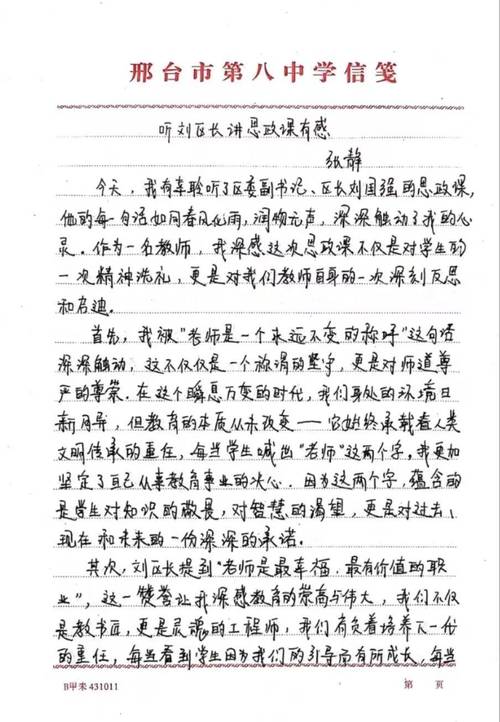 邢台市第八中学信笺
听刘区长讲思政课有感
张静
今天，我有幸聆听了区委副书记、区长刘国强的思政课，
他的每一句话如同春风化雨，润物无声，深深触动了我的心
灵。作为一名教师，我深感这次思政课不仅是对学生的
一次精神洗礼，更是对我们教师自身的一次深刻反思
和启迪。
首先，我被"老师是一个永远不变的称呼"这句话
深深触动，这不仅仅是一个称谓的坚守，更是对师道尊
严的尊崇。在这个瞬息万变的时代，我们身处的环境日
新月异，但教育的本质从未改变——它始终承载着人类
文明传承的重任，每当学生喊出"老师"这两个字，我更加
坚定了自己从事教育事业的决心。因为这两个字，蕴含的
是学生对知识的敬畏，对智慧的渴望，更是对过去、
现在和未来的一份深深的承诺。
其次，刘区长提到"老师是最幸福、最有价值的职
业"，这一赞誉让我深感教育的崇高与伟大，我们不仅
是教书匠，更是灵魂的工程师，我们肩负着培养下一代
的重任，每当看到学生因为我们的引导而有所成长，每当
B甲未431011
第 页